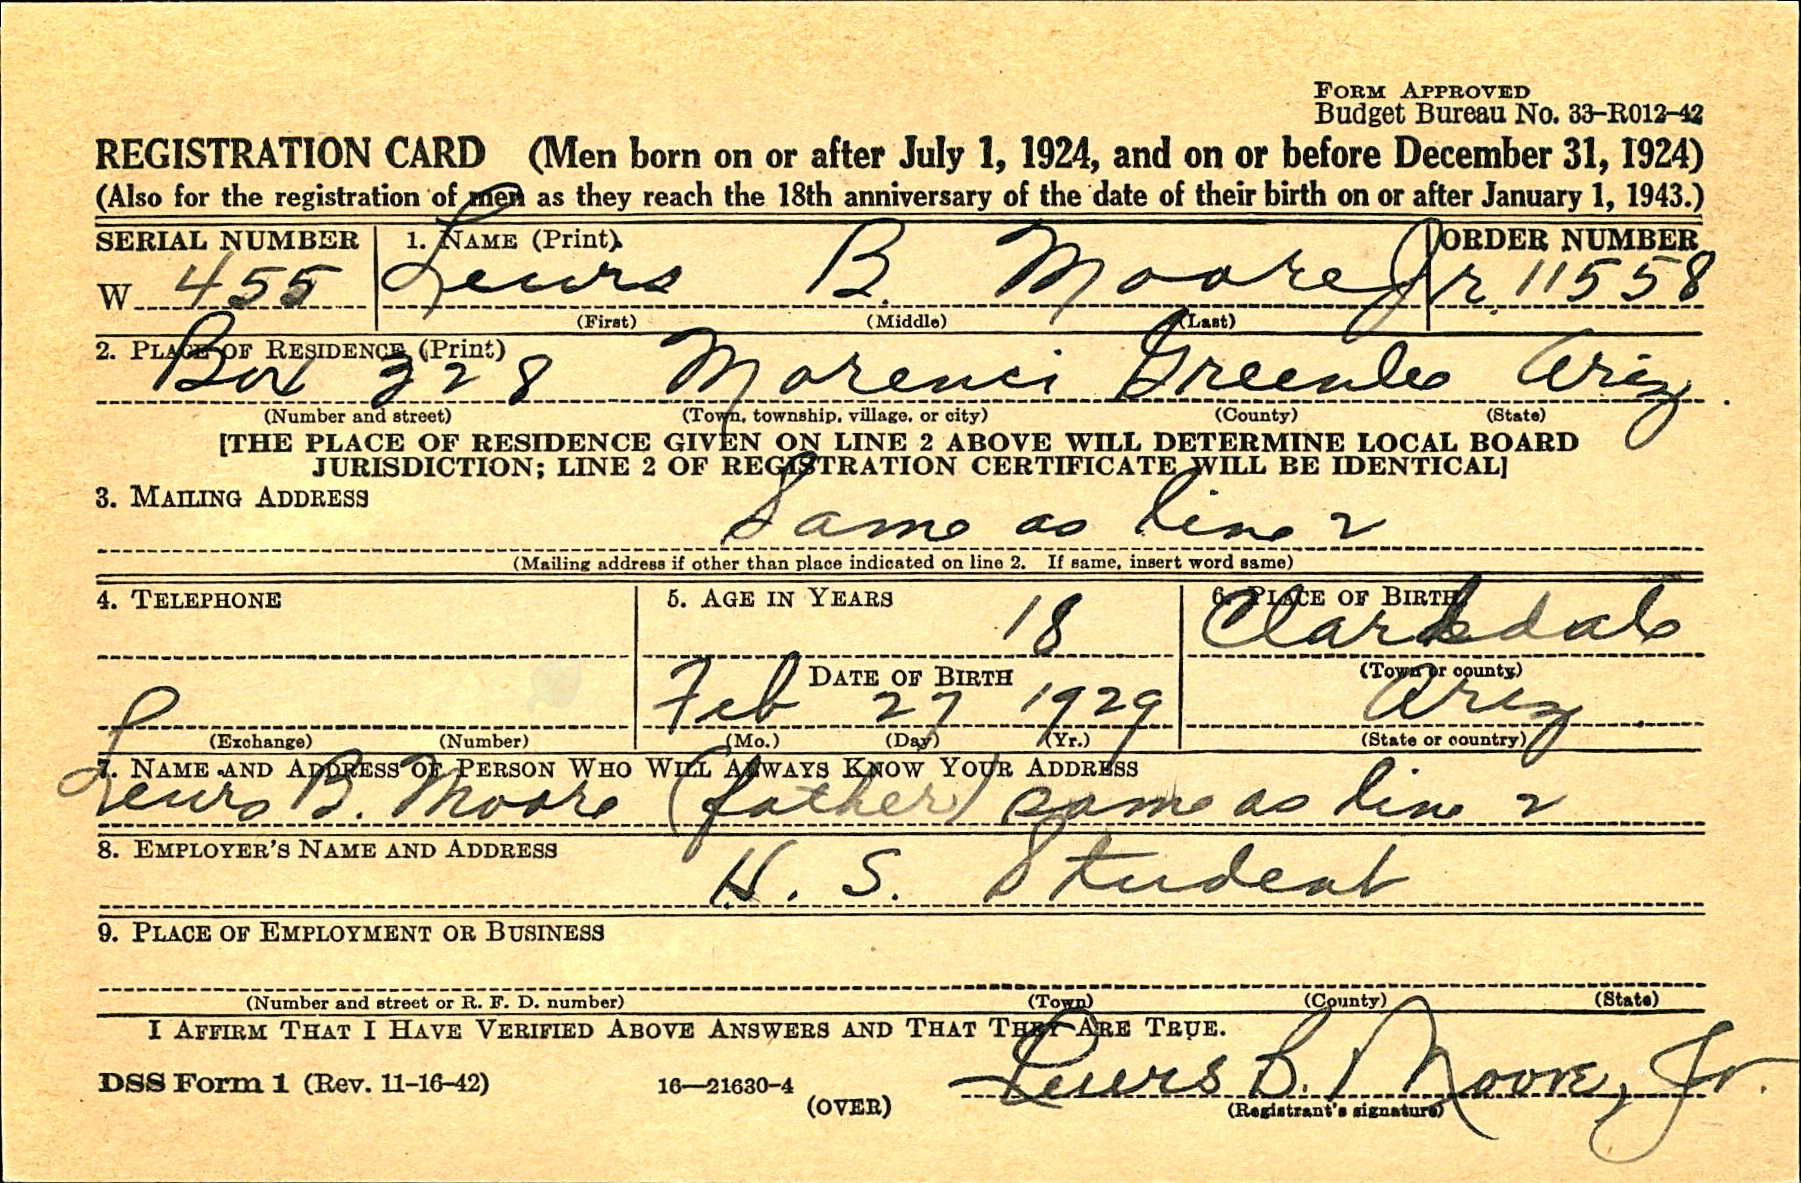 FORM APPROVED
Budget Bureau No. 33-R012-42
REGISTRATION CARD (Men born on or after July 1, 1924, and on or before December 31, 1924)
(Also for the registration of men as they reach the 18th anniversary of the date of their birth on or after January 1, 1943.)
SERIAL NUMBER 1. NAME (Print) ORDER NUMBER
W 455 Lewis B. Moore Jr. 11558
(First) (Middle) (Last)
2. PLACE OF RESIDENCE (Print)
Box 328 Morenci Greenlee Ariz.
(Number and street) (Town, township, village, or city) (County) (State)
[THE PLACE OF RESIDENCE GIVEN ON LINE 2 ABOVE WILL DETERMINE LOCAL BOARD
JURISDICTION; LINE 2 OF REGISTRATION CERTIFICATE WILL BE IDENTICAL]
3. MAILING ADDRESS
Same as line 2
(Mailing address if other than place indicated on line 2. If same, insert word same)
4. TELEPHONE 5. AGE IN YEARS 6. PLACE OF BIRTH
18 Clarkdale
DATE OF BIRTH (Town or county)
Feb 27 1929 Ariz.
(Exchange) (Number) (Mo.) (Day) (Yr.) (State or country)
7. NAME AND ADDRESS OF PERSON WHO WILL ALWAYS KNOW YOUR ADDRESS
Lewis B. Moore (father) same as line 2
8. EMPLOYER'S NAME AND ADDRESS
H. S. Student
9. PLACE OF EMPLOYMENT OR BUSINESS
(Number and street or R. F. D. number) (Town) (County) (State)
I AFFIRM THAT I HAVE VERIFIED ABOVE ANSWERS AND THAT THEY ARE TRUE.
Lewis B. Moore, Jr.
DSS Form 1 (Rev. 11-16-42) 16—21630-4
(OVER) (Registrant's signature)